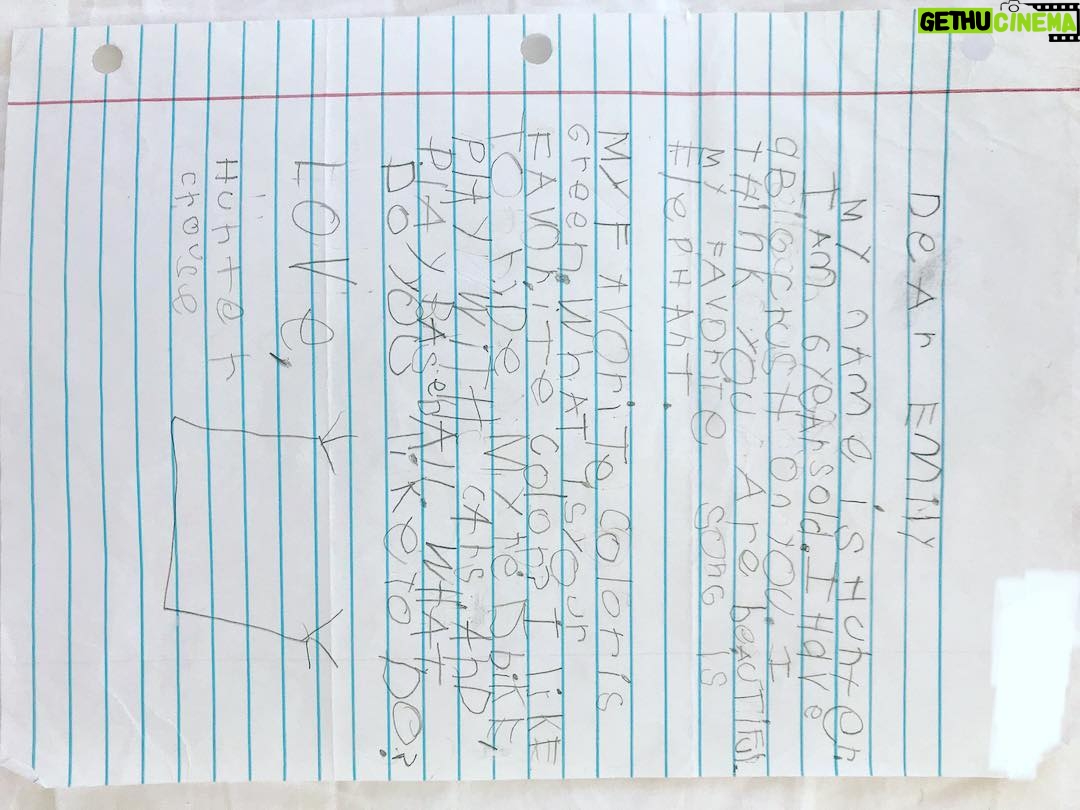 GETHUCINEMA
DeAr EMily
MY nAMe is Hunter.
I AM 6 yeArs old. I HAve
a Big crusH on you. I
tHink you Are beAuTiful.
My FAVOrite song is
ElePHAnT.
MY FAVOriTe Color is
Green. WHAT is your
FAVOriTe Color? I liKE
TO riDe My reD biKE,
PlAy WiTH cArs AnD
PlAy BASebAll. WHAT
Do you liKe to Do?
LOVe,
Hunter